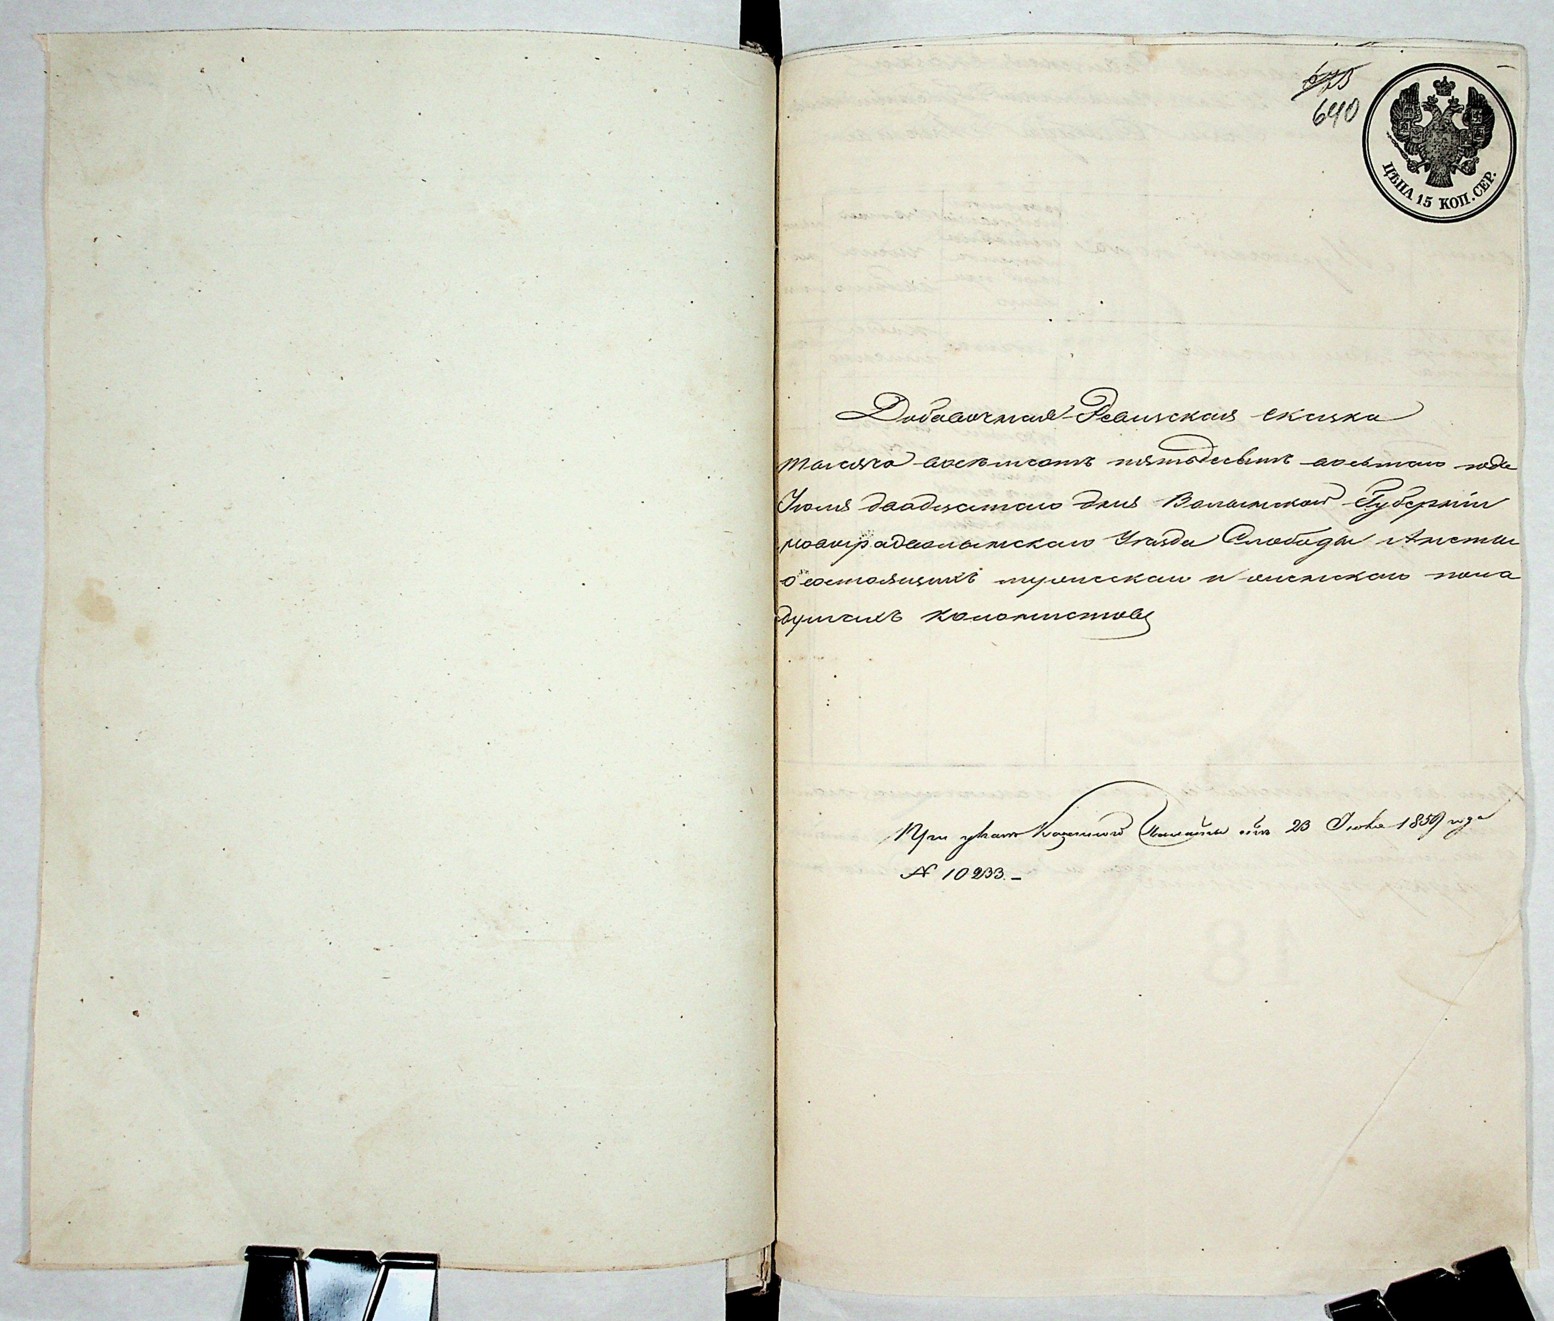 675
640
ЦѢНА 15 КОП. СЕР.
Добавочная Ревизская сказка
тысяча восемсотъ пятьдесятъ восьмаго года
Іюля двадцатаго дня Волынской Губерніи
новоградволынскаго Уѣзда Слободы Аneты
о состоящихъ мужескаго и женскаго пола
душахъ колонистовъ
При указѣ Казенной Палаты отъ 23 1859 года
№ 10233.